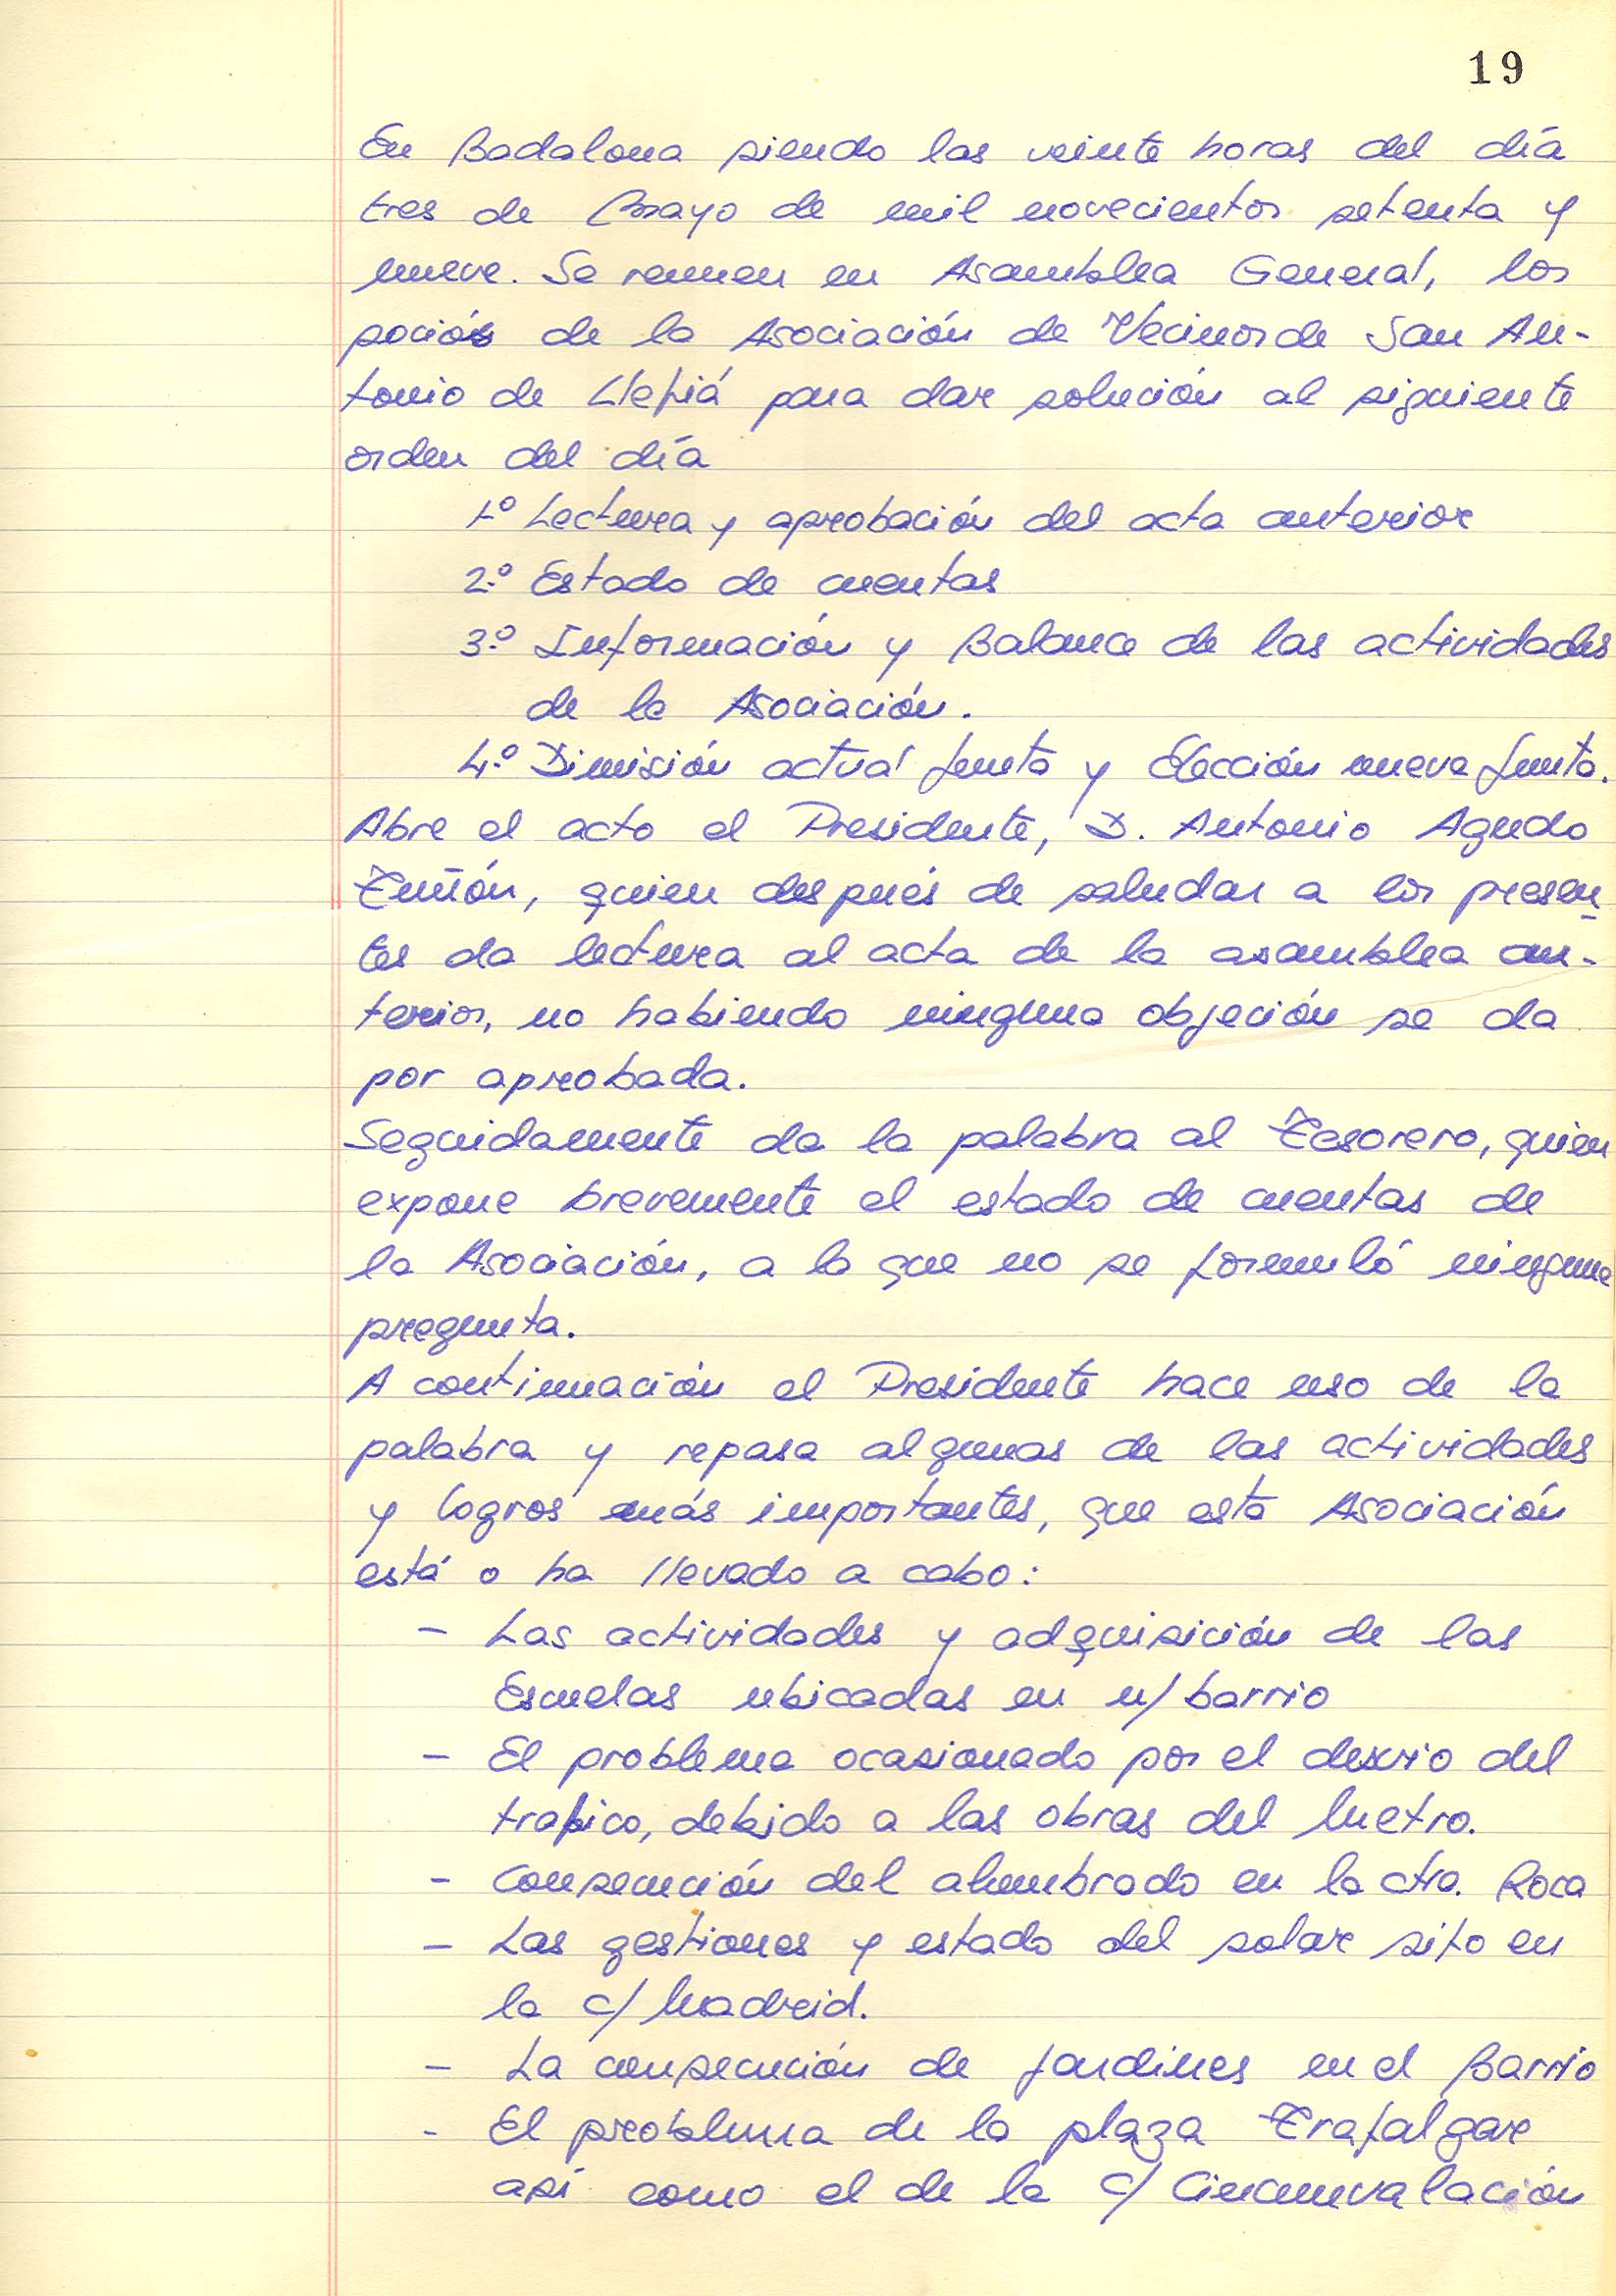 19
En Badalona siendo las veinte horas del día
tres de Mayo de mil novecientos setenta y
nueve. Se reunen en Asamblea General, los
socios de la Asociación de Vecinos de San An-
tonio de Llefiá para dar solución al siguiente
orden del día
1º Lectura y aprobación del acta anterior
2.º Estado de cuentas
3.º Información y Balance de las actividades
de la Asociación.
4.º Dimisión actual Junta y Elección nueva Junta.
Abre el acto el Presidente, D. Antonio Agudo
Tuñón, quien después de saludar a los presen-
tes da lectura al acta de la asamblea an-
terior, no habiendo ninguna objeción se da
por aprobada.
Seguidamente da la palabra al Tesorero, quien
expone brevemente el estado de cuentas de
la Asociación, a lo que no se formuló ninguna
pregunta.
A continuación el Presidente hace uso de la
palabra y repasa algunas de las actividades
y logros más importantes, que esta Asociación
está o ha llevado a cabo:
- Las actividades y adquisición de las
Escuelas ubicadas en n/ barrio
- El problema ocasionado por el desvio del
trafico, debido a las obras del Metro.
- Consecución del alumbrado en la ctra. Roca
- Las gestiones y estado del solar sito en
la c/ Madrid.
- La consecución de Jardines en el Barrio
- El problema de la plaza Trafalgar
así como el de la c/ Circunvalación